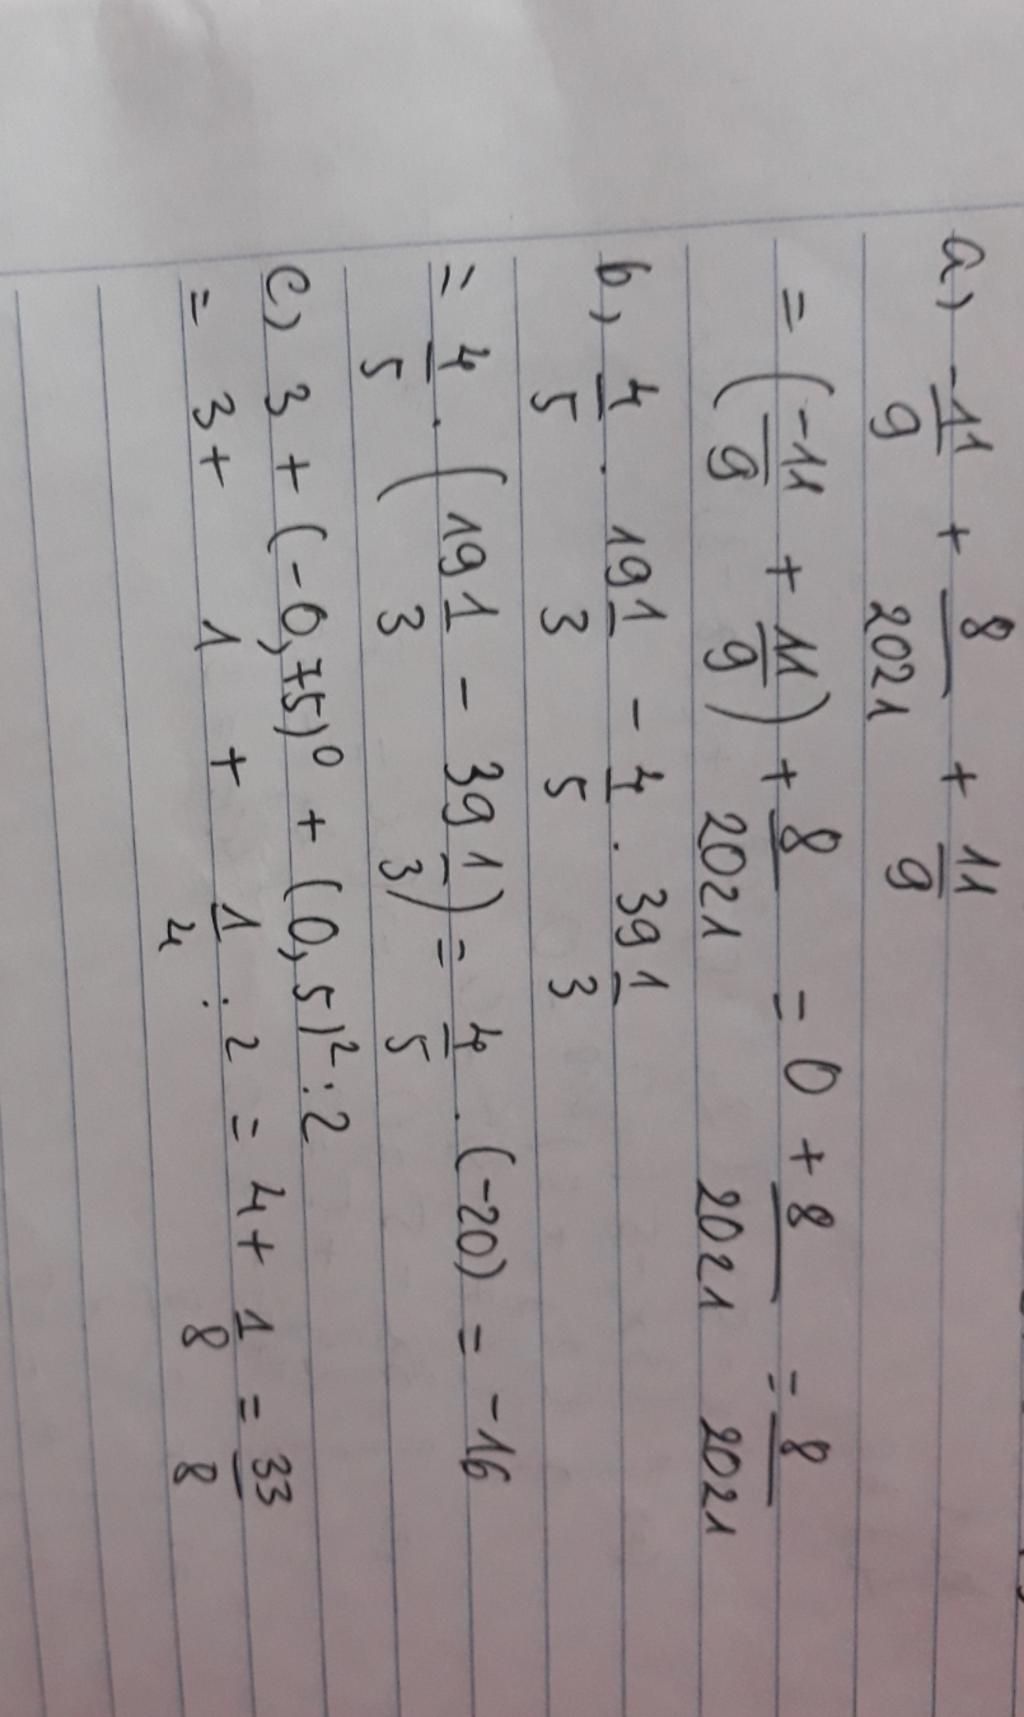 a) -11/9 + 8/2021 + 11/9
= (-11/9 + 11/9) + 8/2021 = 0 + 8/2021 = 8/2021
b, 4/5 . 19 1/3 - 4/5 . 39 1/3
= 4/5 . (19 1/3 - 39 1/3) = 4/5 . (-20) = -16
c) 3 + (-0,75)⁰ + (0,5)² : 2
= 3 + 1 + 1/4 : 2 = 4 + 1/8 = 33/8